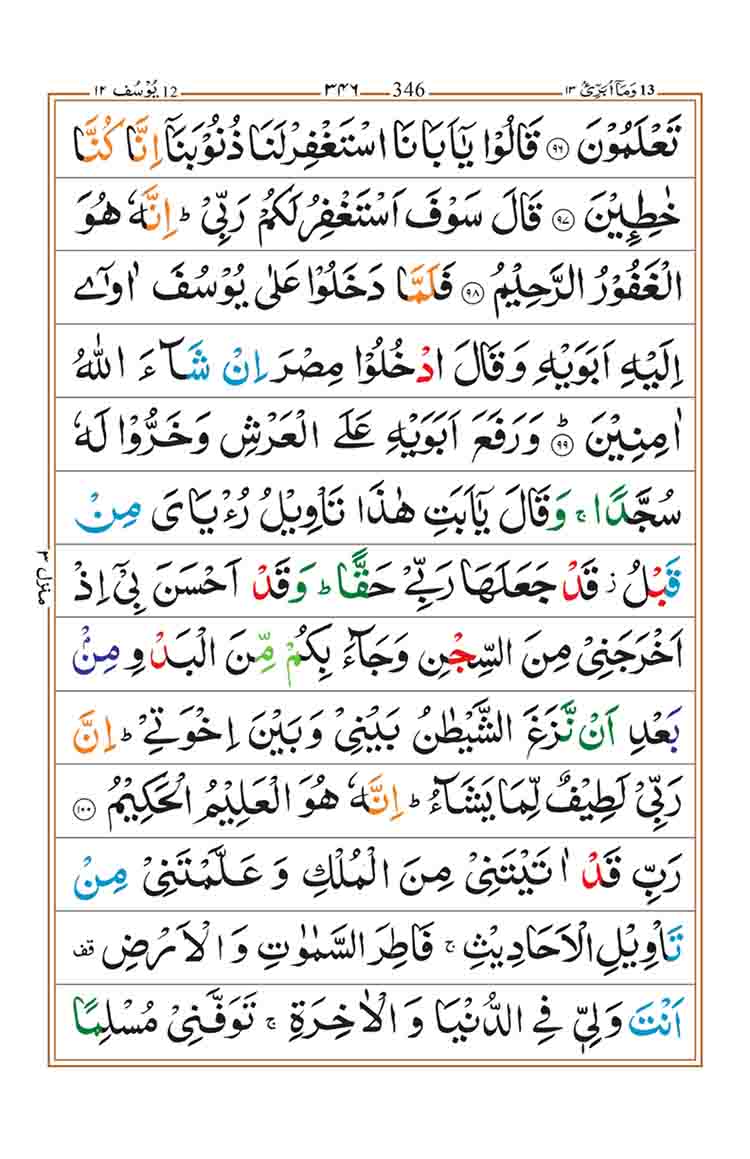 12 يُوْسُف ١٢ ٣٤٦ 346 13 وَمَاۤ اُبَرِّئُ ١٣
تَعْلَمُوْنَ ۝٩٦ قَالُوْا يٰۤاَبَانَا اسْتَغْفِرْ لَنَا ذُنُوْبَنَاۤ اِنَّا كُنَّا
خٰطِـِٕيْنَ ۝٩٧ قَالَ سَوْفَ اَسْتَغْفِرُ لَكُمْ رَبِّيْ ؕ اِنَّهٗ هُوَ
الْغَفُوْرُ الرَّحِيْمُ ۝٩٨ فَلَمَّا دَخَلُوْا عَلٰى يُوْسُفَ اٰوٰۤى
اِلَيْهِ اَبَوَيْهِ وَقَالَ ادْخُلُوْا مِصْرَ اِنْ شَآءَ اللّٰهُ
اٰمِنِيْنَ ؕ۝٩٩ وَرَفَعَ اَبَوَيْهِ عَلَى الْعَرْشِ وَخَرُّوْا لَهٗ
سُجَّدًا ۚ وَقَالَ يٰۤاَبَتِ هٰذَا تَاْوِيْلُ رُءْيَايَ مِنْ
قَبْلُ ز قَدْ جَعَلَهَا رَبِّيْ حَقًّا ؕ وَقَدْ اَحْسَنَ بِيْۤ اِذْ
اَخْرَجَنِيْ مِنَ السِّجْنِ وَجَآءَ بِكُمْ مِّنَ الْبَدْوِ مِنْۢ
بَعْدِ اَنْ نَّزَغَ الشَّيْطٰنُ بَيْنِيْ وَبَيْنَ اِخْوَتِيْ ؕ اِنَّ
رَبِّيْ لَطِيْفٌ لِّمَا يَشَآءُ ؕ اِنَّهٗ هُوَ الْعَلِيْمُ الْحَكِيْمُ ۝١٠٠
رَبِّ قَدْ اٰتَيْتَنِيْ مِنَ الْمُلْكِ وَعَلَّمْتَنِيْ مِنْ
تَاْوِيْلِ الْاَحَادِيْثِ ۚ فَاطِرَ السَّمٰوٰتِ وَالْاَرْضِ قف
اَنْتَ وَلِيّٖ فِي الدُّنْيَا وَالْاٰخِرَةِ ۚ تَوَفَّنِيْ مُسْلِمًا
منزل ٣